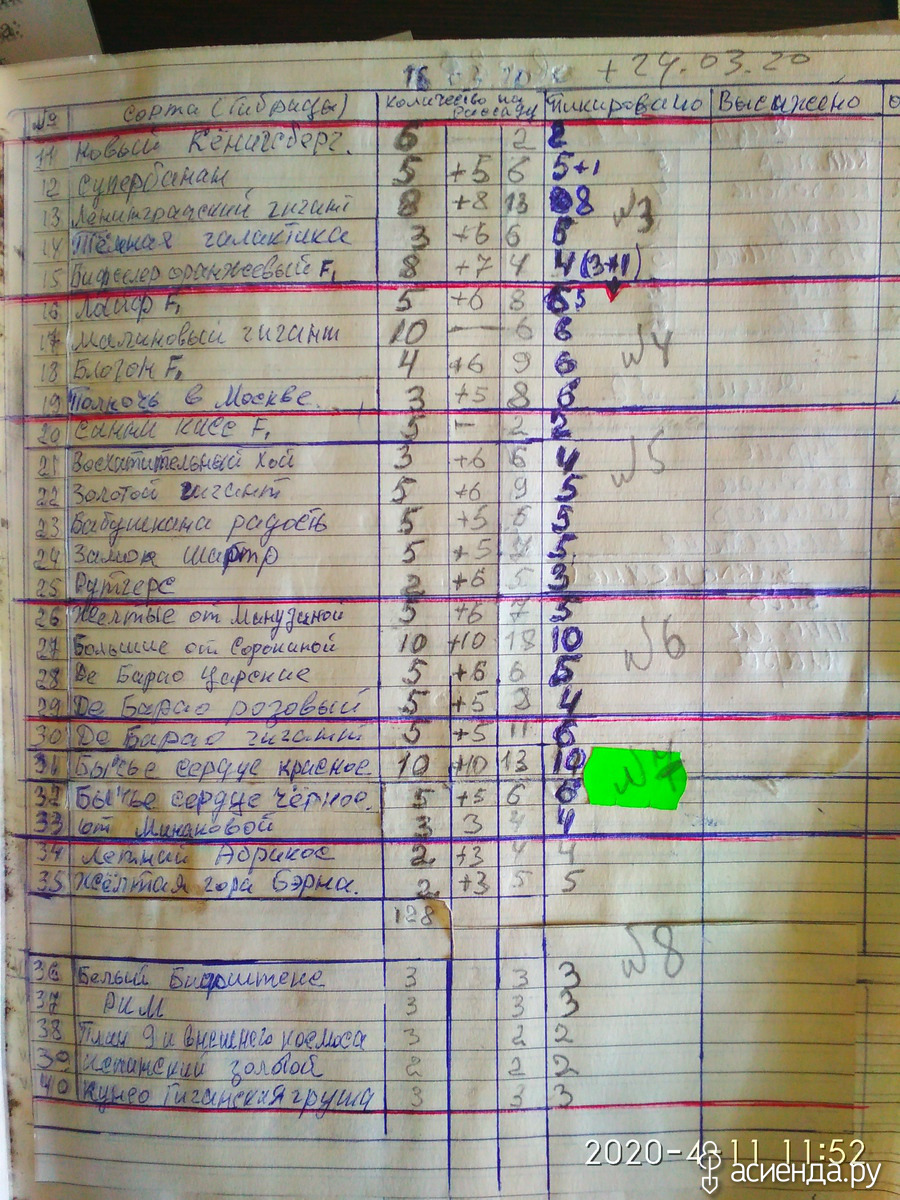 + 24.03.20
№ сорта (Гибриды) количество на рассаду Пикировано Высажено
11 Новый Кёнигсберг. 6 — 2 2
12 Супербанан 5 +5 6 5+1
13 Ленинградский гигант 8 +8 13 8 №3
14 Тёмная галактика 3 +6 6 6
15 Бифселер оранжевый F1 8 +7 4 4(3+1)
16 Лайф F1 5 +6 8 5
17 Малиновый гигант 10 — 6 6 №4
18 Благон F1 4 +6 9 6
19 Полночь в Москве. 3 +5 8 6
20 Санни кисс F1 5 - 2 2
21 Восхитительный Хой 3 +6 6 4 №5
22 Золотой гигант 5 +6 9 5
23 Бабушкана радость 5 +5 5 5
24 Замок Шартр 5 +5 7 5
25 Рутгерс 2 +6 5 3
26 Жёлтые от Минудиной 5 +6 7 5
27 Большие от Сорокиной 10 +10 18 10 №6
28 Де Барао Царские 5 +6 6 5
29 Де Барао розовый 5 +5 8 4
30 Де Барао гигант 5 +5 11 6
31 Бычье сердце красное 10 +10 13 10 №7
32 Бычье сердце чёрное. 5 +5 6 6
33 от Минаковой 3 3 4 4
34 Летний Абрикос 2 +3 4 4
35 Жёлтая гора Бэрна. 2 +3 5 5
128
№8
36 Белый Бифштекс 3 3 3
37 РИМ 3 3 3
38 План 9 и внешнего космоса 3 2 2
39 испанский золотой 2 2 2
40 Кунео Гигантская груша 3 3 3
2020-4-11 11:52
асиенда.ру